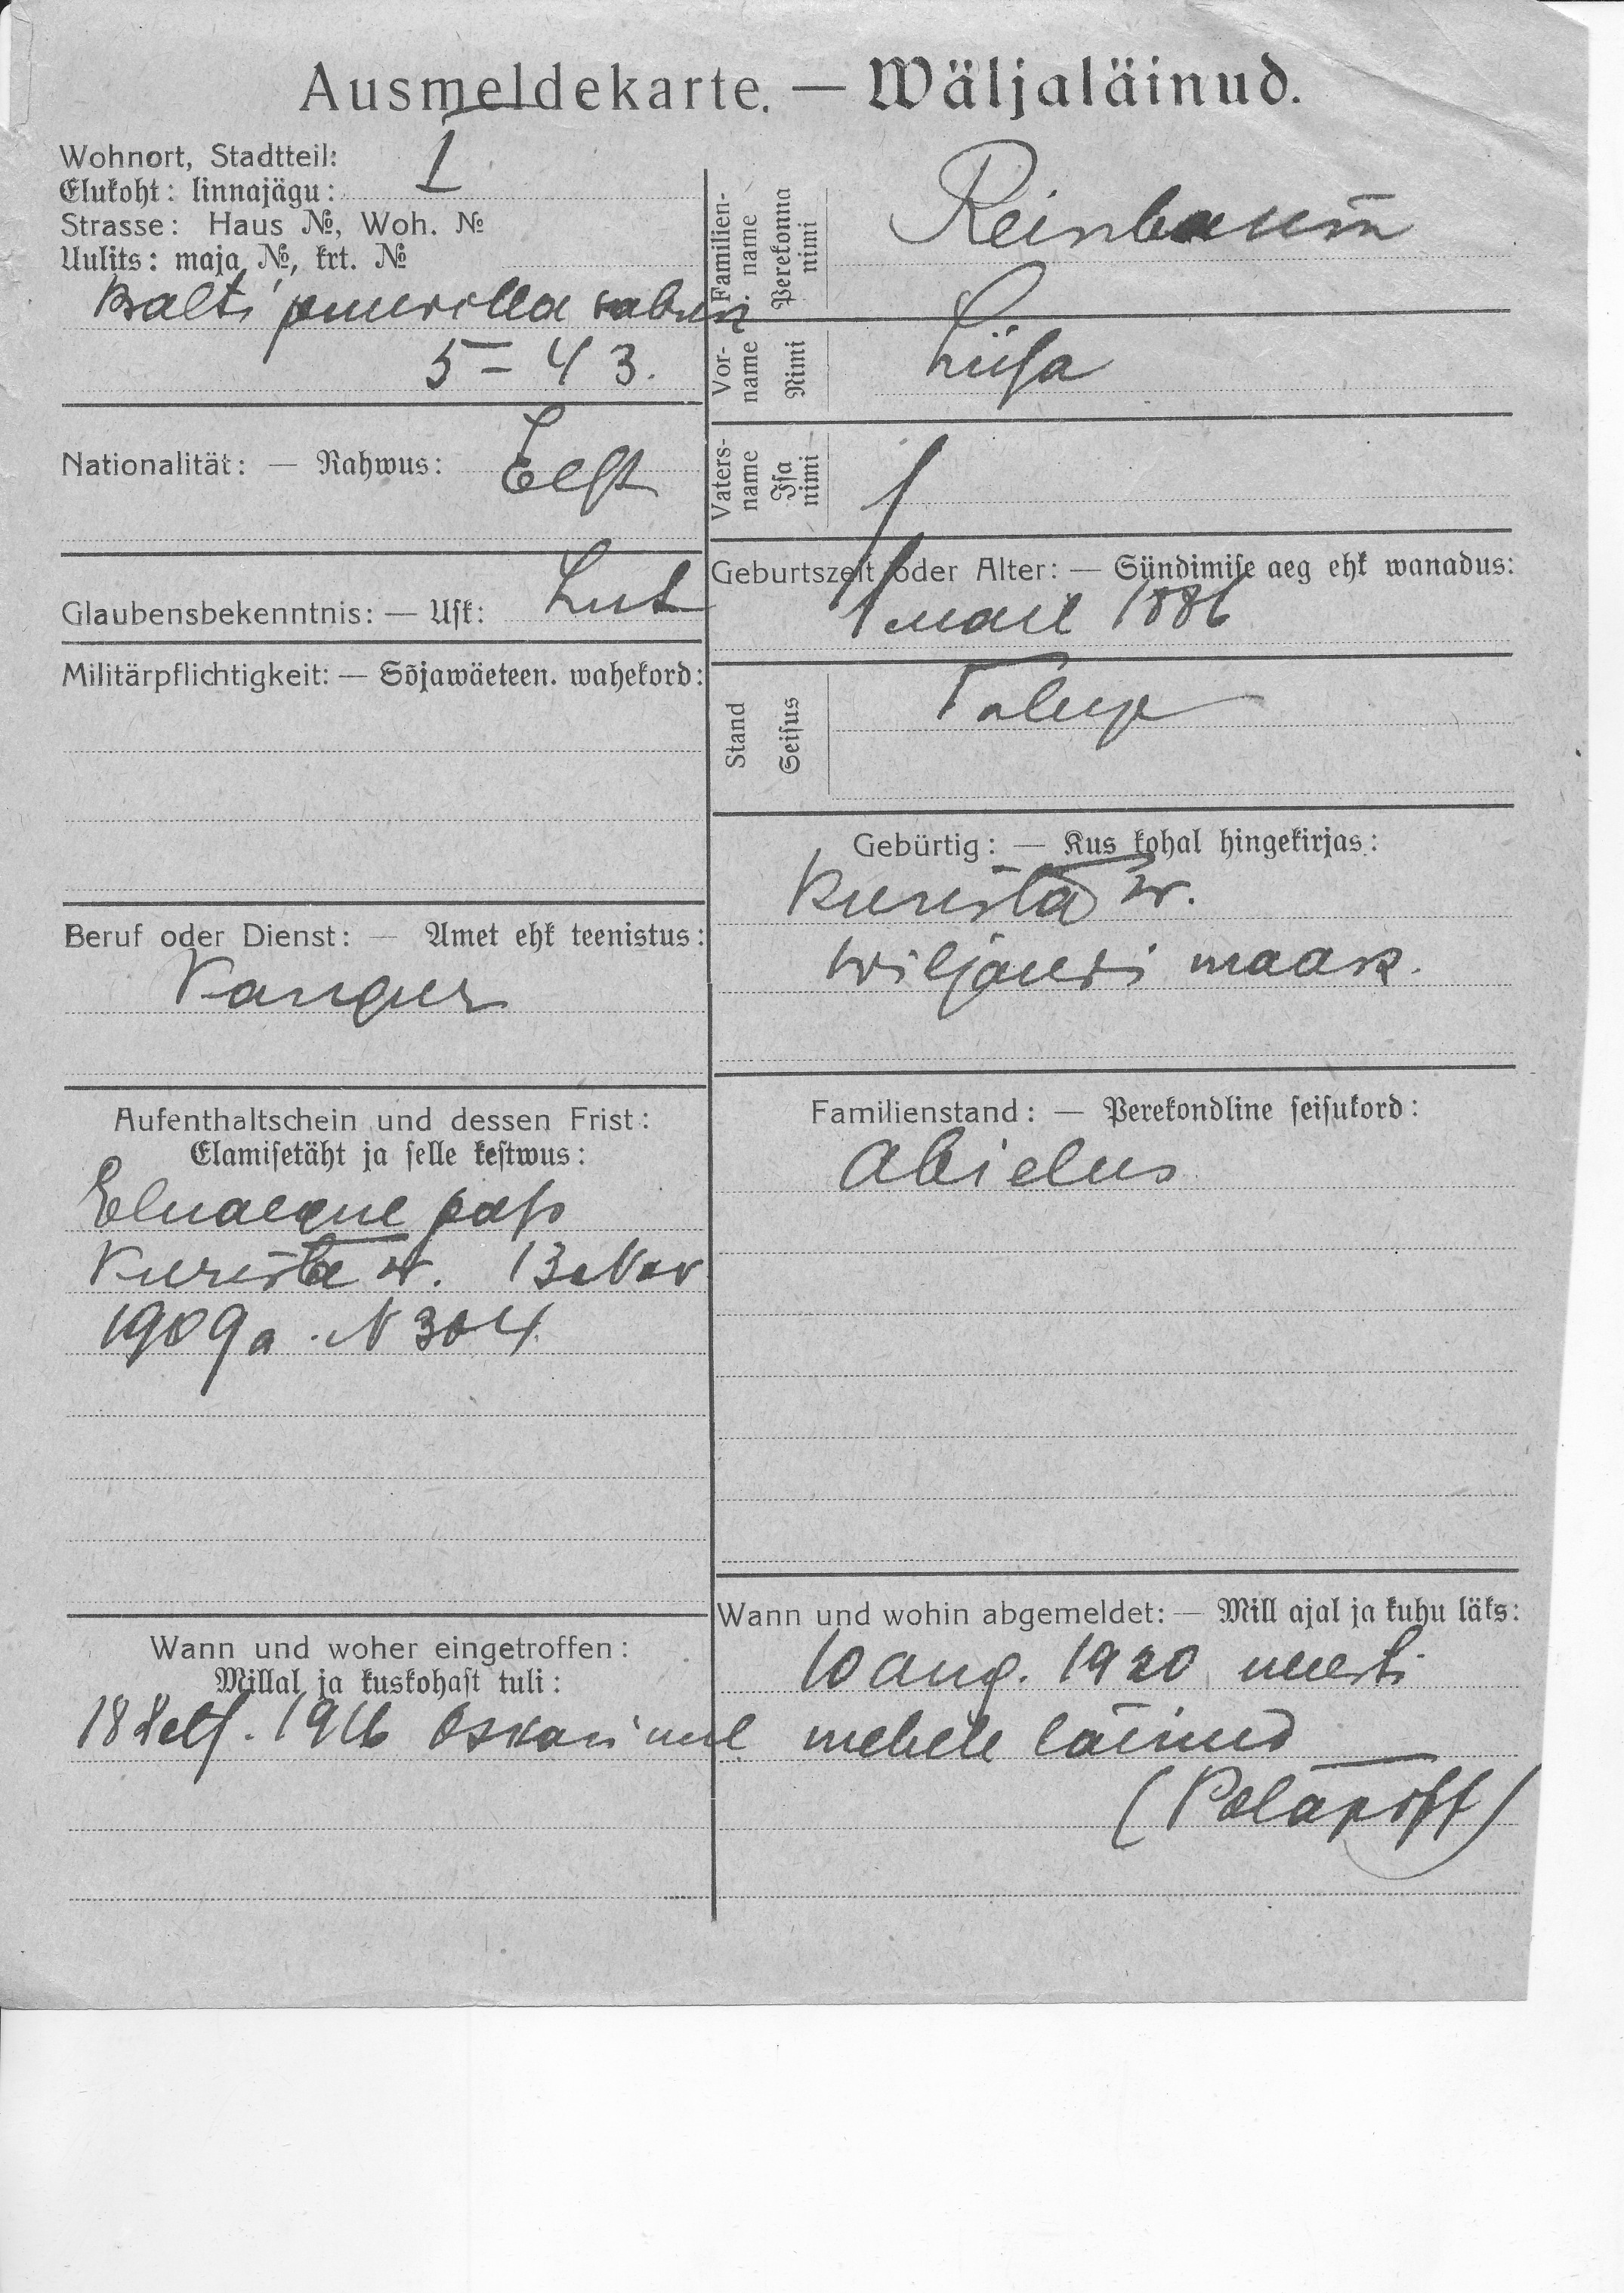 Ausmeldekarte. — Wäljaläinud.
Wohnort, Stadtteil: I
Elukoht: linnajägu:
Strasse: Haus №, Woh. №
Uulits: maja №, krt. №
Balti puuwilla wabrik
5 – 43.
Familien-name Perekonna nimi
Reinbaum
Vor-name Nimi
Liisa
Nationalität: — Rahwus: Eest
Vaters-name Isa nimi
Glaubensbekenntnis: — Usk: Lut
Geburtszeit oder Alter: — Sündimise aeg ehk wanadus:
1 1886
Militärpflichtigkeit: — Sõjawäeteen. wahekord:
Stand Seisus
Talup
Gebürtig: — Kus kohal hingekirjas:
Kurista w.
Wiljandi maak.
Beruf oder Dienst: — Amet ehk teenistus:
Kangur
Aufenthaltschein und dessen Frist:
Elamisetäht ja selle kestwus:
Eluaegne pass
Kurista w. 13 Nov
1909 a. N 304
Familienstand: — Perekondline seisukord:
Abielus
Wann und woher eingetroffen:
Millal ja kuskohast tuli:
18 1916
Wann und wohin abgemeldet: — Mill ajal ja kuhu läks:
10 aug. 1920 uuesti
mehele läinud